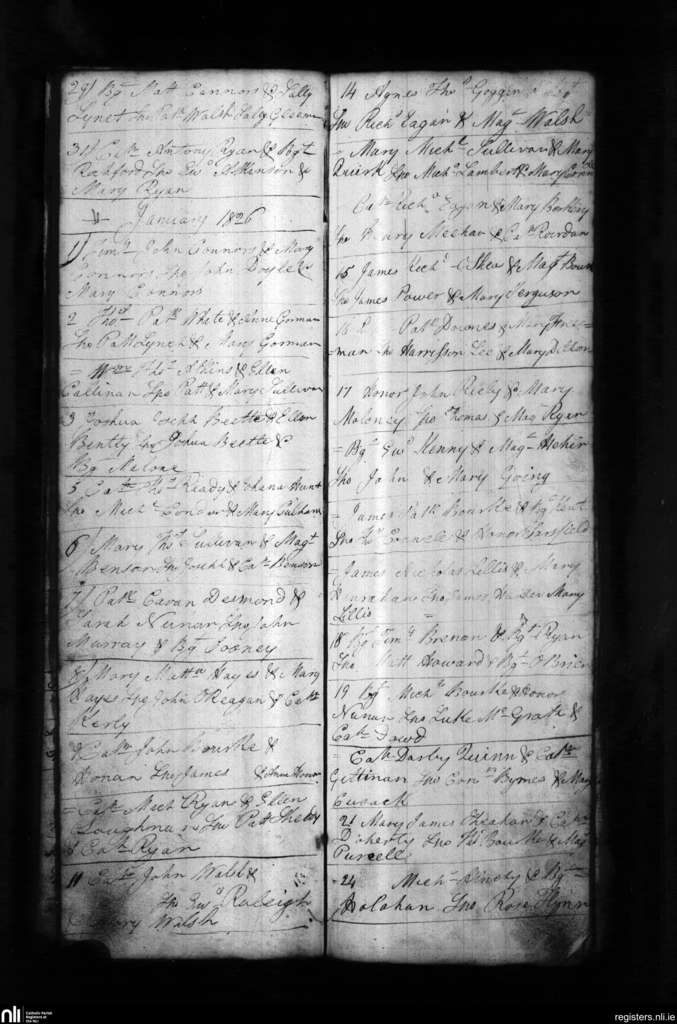 29 Bgt Matt Connors & Sally
Lynet Spo Patk Walsh Sally Gleeson
31 Cath Antony Ryan & Bgt
Rochford Spo Edwd Atkinson &
Mary Ryan
January 1826
1 Timy John Connors & Mary
Connors Spo John Doyle &
Mary Connors
2 Thos Patk White & Anne Gorman
Spo Pat McLynch & Mary Gorman
= Thos Atkins & Ellen
Callinan Spo Patt & Mary Sullivan
3 Joshua Beette & Ellen
Bentty Spo Joshua Beette &
Bg Malone
5 Cath Thos Ready & Johana Hunt
Spo Michl Condon & Mary Culham
6 Mary Thos Sullivan & Magt
Benson Spo Josehh & Cath Benson
7 Patk Cavan Desmond &
Sarah Nunan Spo John
Murray & Bgt Looney
8 Mary Matt Hayes & Mary
Hayes Spo John OReagan & Cath
Kerly
& Cath John Bourke &
Honan Spo James & Anne Honan
= Cath Mich Ryan & Ellen
Loughnan Spo Patt Sheedy
& Cath Ryan
11 Cath John Walsh &
Spo Edwd Raleigh
Mary Walsh
14 Agnes Thos Goggin &
Spo Richd Eagan & Magt Walsh
= Mary Michl Sullivan & Mary
Quirk Spo Michl Lambert & Mary
Cath Richd Eagan & Mary Berkley
Spo Mary Meehan & Cath Riordan
15 James Richd OShea & Magt Bourke
Spo James Power & Mary Ferguson
16 Patk Downes & Mary Hne=
=man Spo Harrison Lee & Mary Dillon
17 Honor John Rieby & Mary
Maloney Spo Thomas & Mag Ryan
= Bgt Edwd Kenny & Magt Hehir
Spo John & Mary Going
= James Patk Bourke & Bgt Hunt
Spo Thos Connell & Honor Sarsfield
= James Nicholas Lillis & Mary
Hourahan Spo James & Mary
Lillis
18 Bgt Timy Brenon & Bgt Ryan
Spo Matt Howard & Bgt OBrien
19 Bgt Michl Bourke & Honor
Nunan Spo Luke McGrath &
Cath Dowd
= Cath Darby Quinn & Cath
Gettinan Spo Corns Byrnes & Mary
Cusack
21 Mary James Meehan & Cath
Doherty Spo Thos Bourke & Mag
Purcell
24 Michl Ninety & Bgt
Holahan Spo Rose Flynn
nli
Catholic Parish
Registers at
the NLI
registers.nli.ie